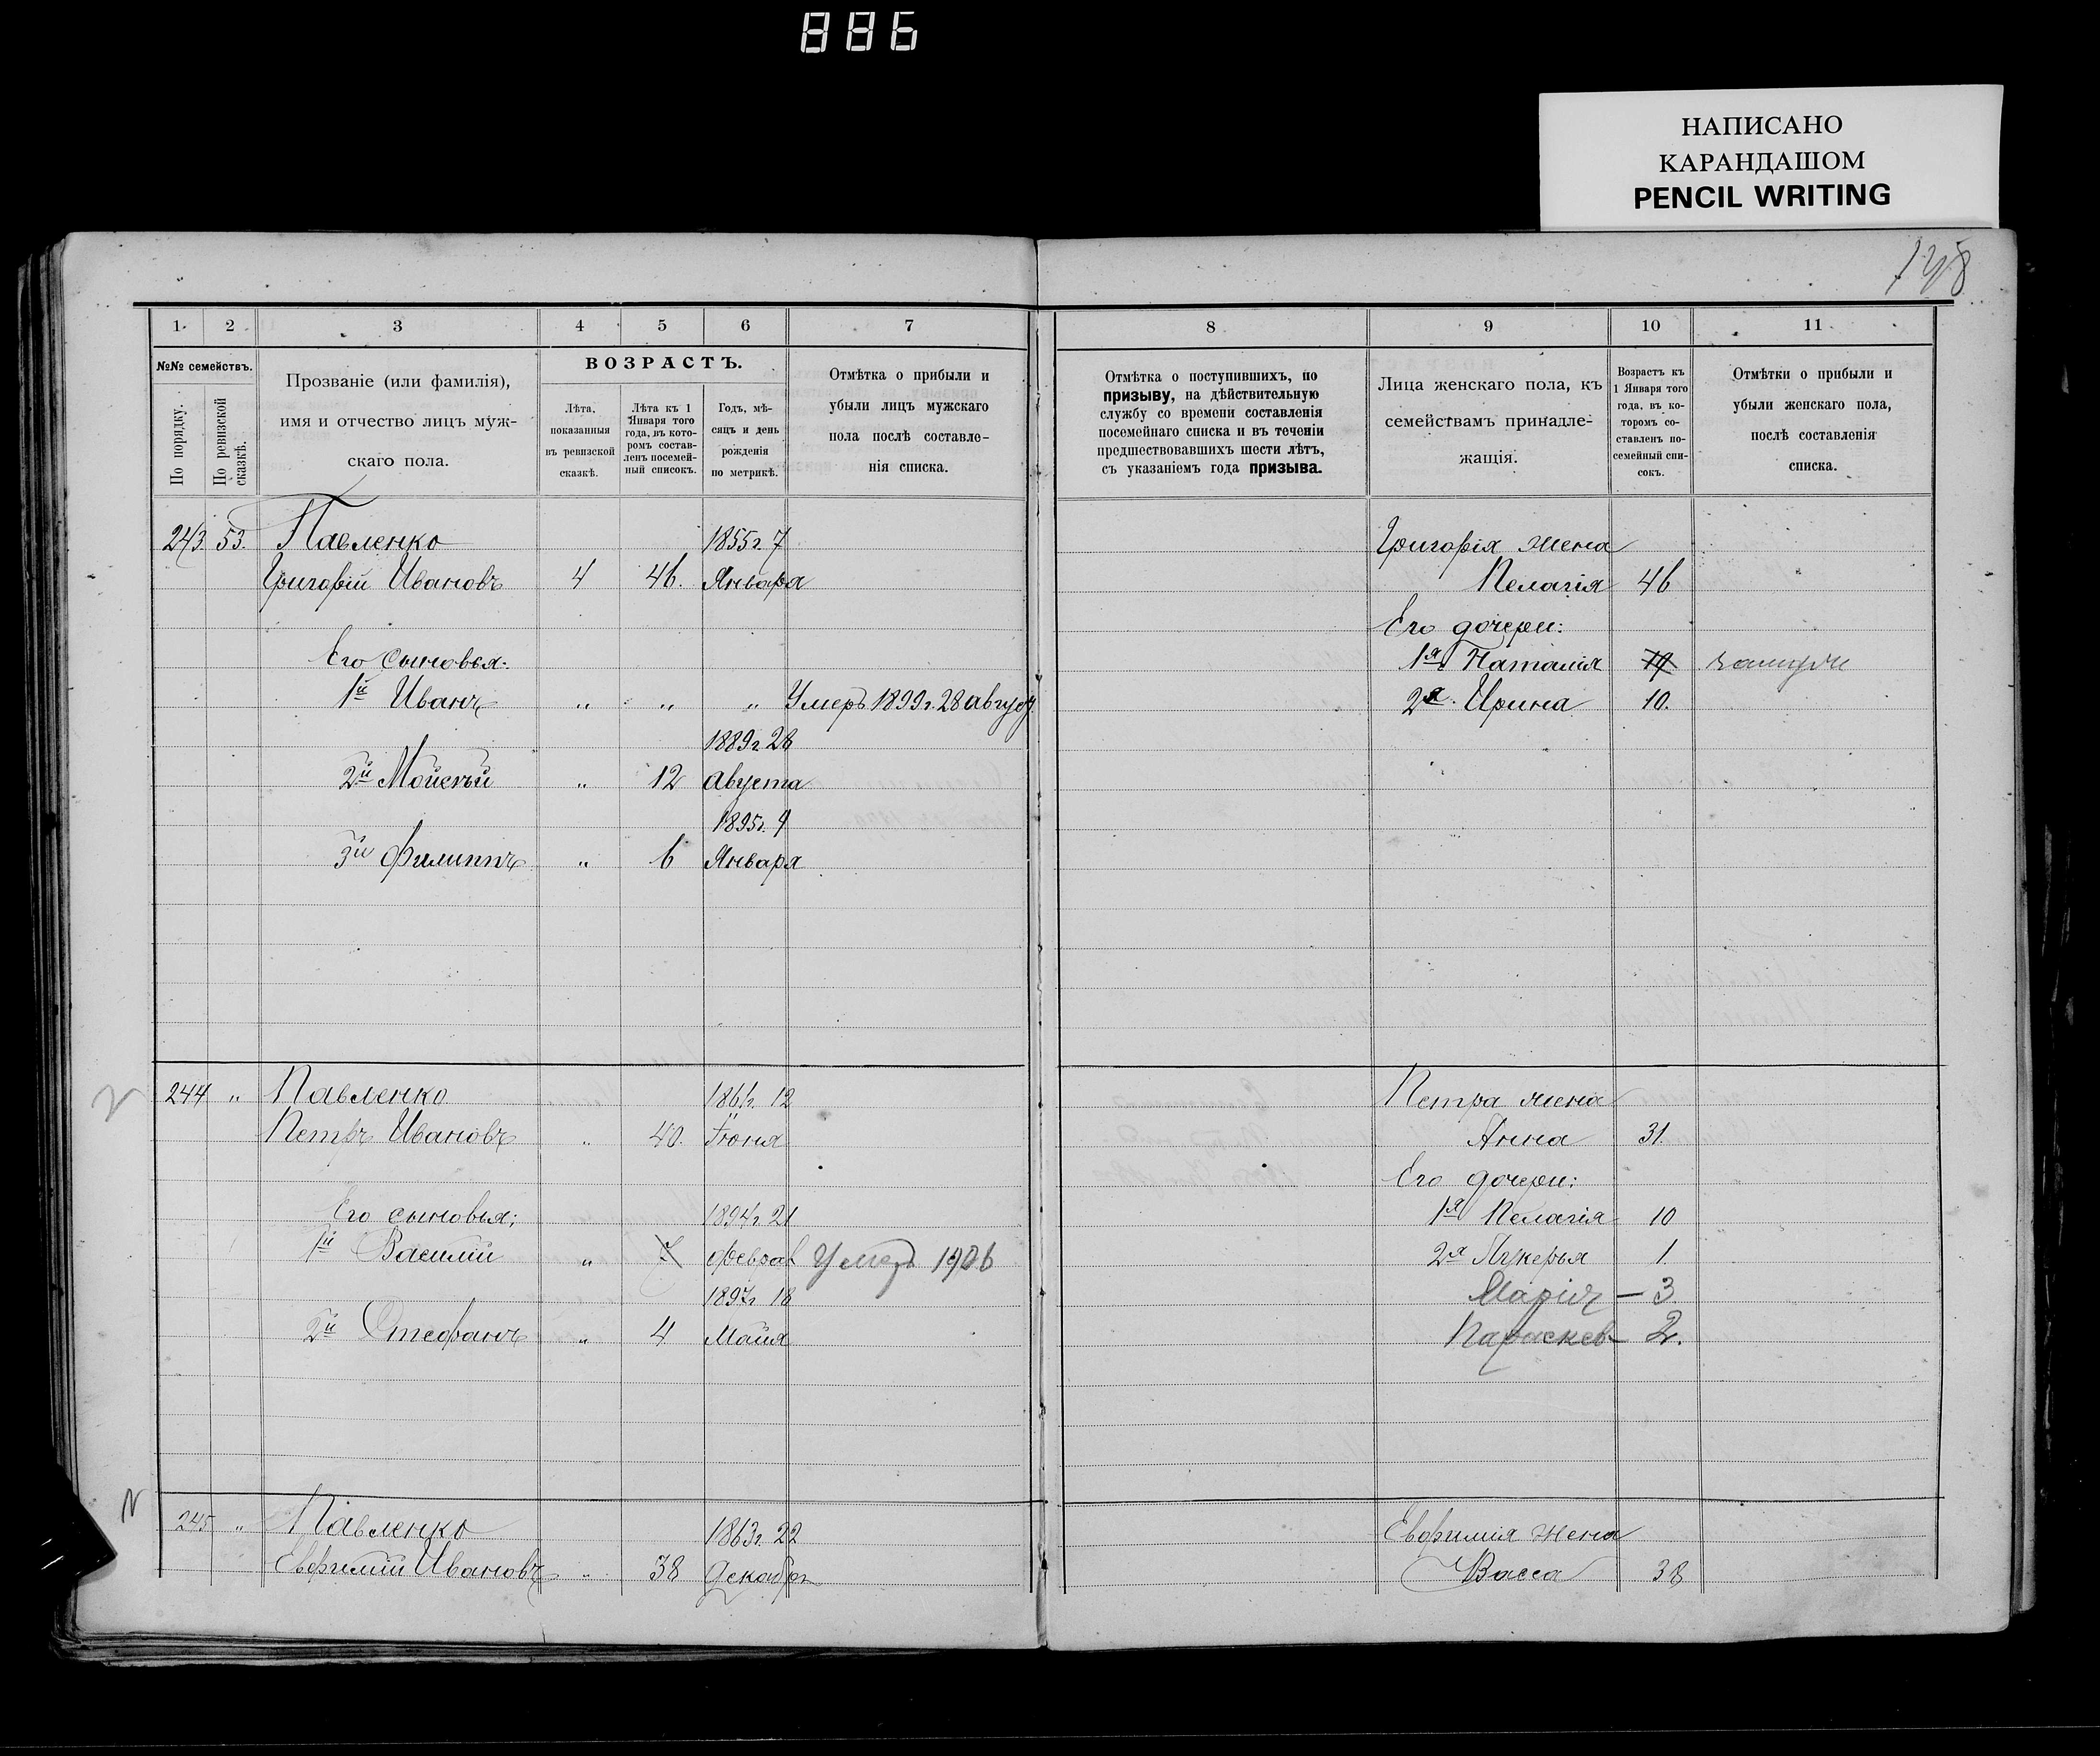 886
НАПИСАНО
КАРАНДАШОМ
PENCIL WRITING
1 2 3 4 5 6 7
№№ семействъ.
По порядку.
По ревизской сказкѣ.
Прозваніе (или фамилія),
имя и отчество лицъ муж-
скаго пола.
ВОЗРАСТЪ.
Лѣта,
показанныя
въ ревизской
сказкѣ.
Лѣта къ 1
Января того
года, въ кото-
ромъ состав-
ленъ посемей-
ный списокъ.
Годъ, мѣ-
сяцъ и день
рожденія
по метрикѣ.
Отмѣтка о прибыли и
убыли лицъ мужскаго
пола послѣ составле-
нія списка.
243. 53. Павленко 1855 г. 7
Григорій Ивановъ 4 46. Января
Его сыновья:
1й Иванъ " " " Умеръ 1899 г. 28 август.
1889 г. 28
2й Мойсей " 12 Августа
1895 г. 9
3й Филиппъ " 6 Января
244 " Павленко 1861 г. 12
Петръ Ивановъ " 40. Іюня
Его сыновья: 1894 г. 21
1й Василій " 7 Феврал Умеръ 1906
1897 г. 18
2й Стефанъ " 4 Майя
245 " Павленко 1863 г. 22
Евфимій Ивановъ " 38 Декабря
8 9 10 11
Отмѣтка о поступившихъ, по
призыву, на дѣйствительную
службу со времени составленія
посемейнаго списка и въ теченіи
предшествовавшихъ шести лѣтъ,
съ указаніемъ года призыва.
Лица женскаго пола, къ
семействамъ принадле-
жащія.
Возрастъ къ
1 Января того
года, въ ко-
торомъ со-
ставленъ по-
семейный спи-
сокъ.
Отмѣтки о прибыли и
убыли женскаго пола,
послѣ составленія
списка.
Григорія жена
Пелагія 46
Его дочери:
1я Наталія замуже
2я Ирина 10.
Петра жена
Анна 31.
Его дочери:
1я Пелагія 10
2я Лукерья 1.
Марія — 3
Параскев 2.
Евфимія жена
Васса 38